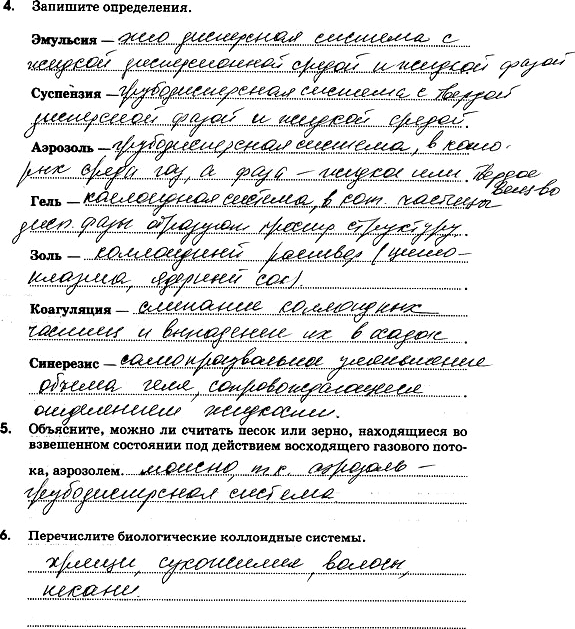 4. Запишите определения.
Эмульсия – это дисперсная система с
жидкой дисперсионной средой и жидкой фазой
Суспензия – грубодисперсная система с твердой
дисперсной фазой и жидкой средой.
Аэрозоль – грубодисперсная система, в кото-
рых среда газ, а фаза – жидкое или твердое
вещ-во
Гель – коллоидная система, в кот. частицы
дисп. фазы образуют простр структуру.
Золь – коллоидный раствор (цито-
плазма, ядерный сок)
Коагуляция – слипание коллоидных
частиц и выпадении их в осадок.
Синерезис – самопроизвольное уменьшение
объема геля, сопровождающееся
отделением жидкости.
5. Объясните, можно ли считать песок или зерно, находящиеся во
взвешенном состоянии под действием восходящего газового пото-
ка, аэрозолем. можно, т.к. аэрозоль –
грубодисперсная система
6. Перечислите биологические коллоидные системы.
хрящи, сухожилия, волосы,
ткани